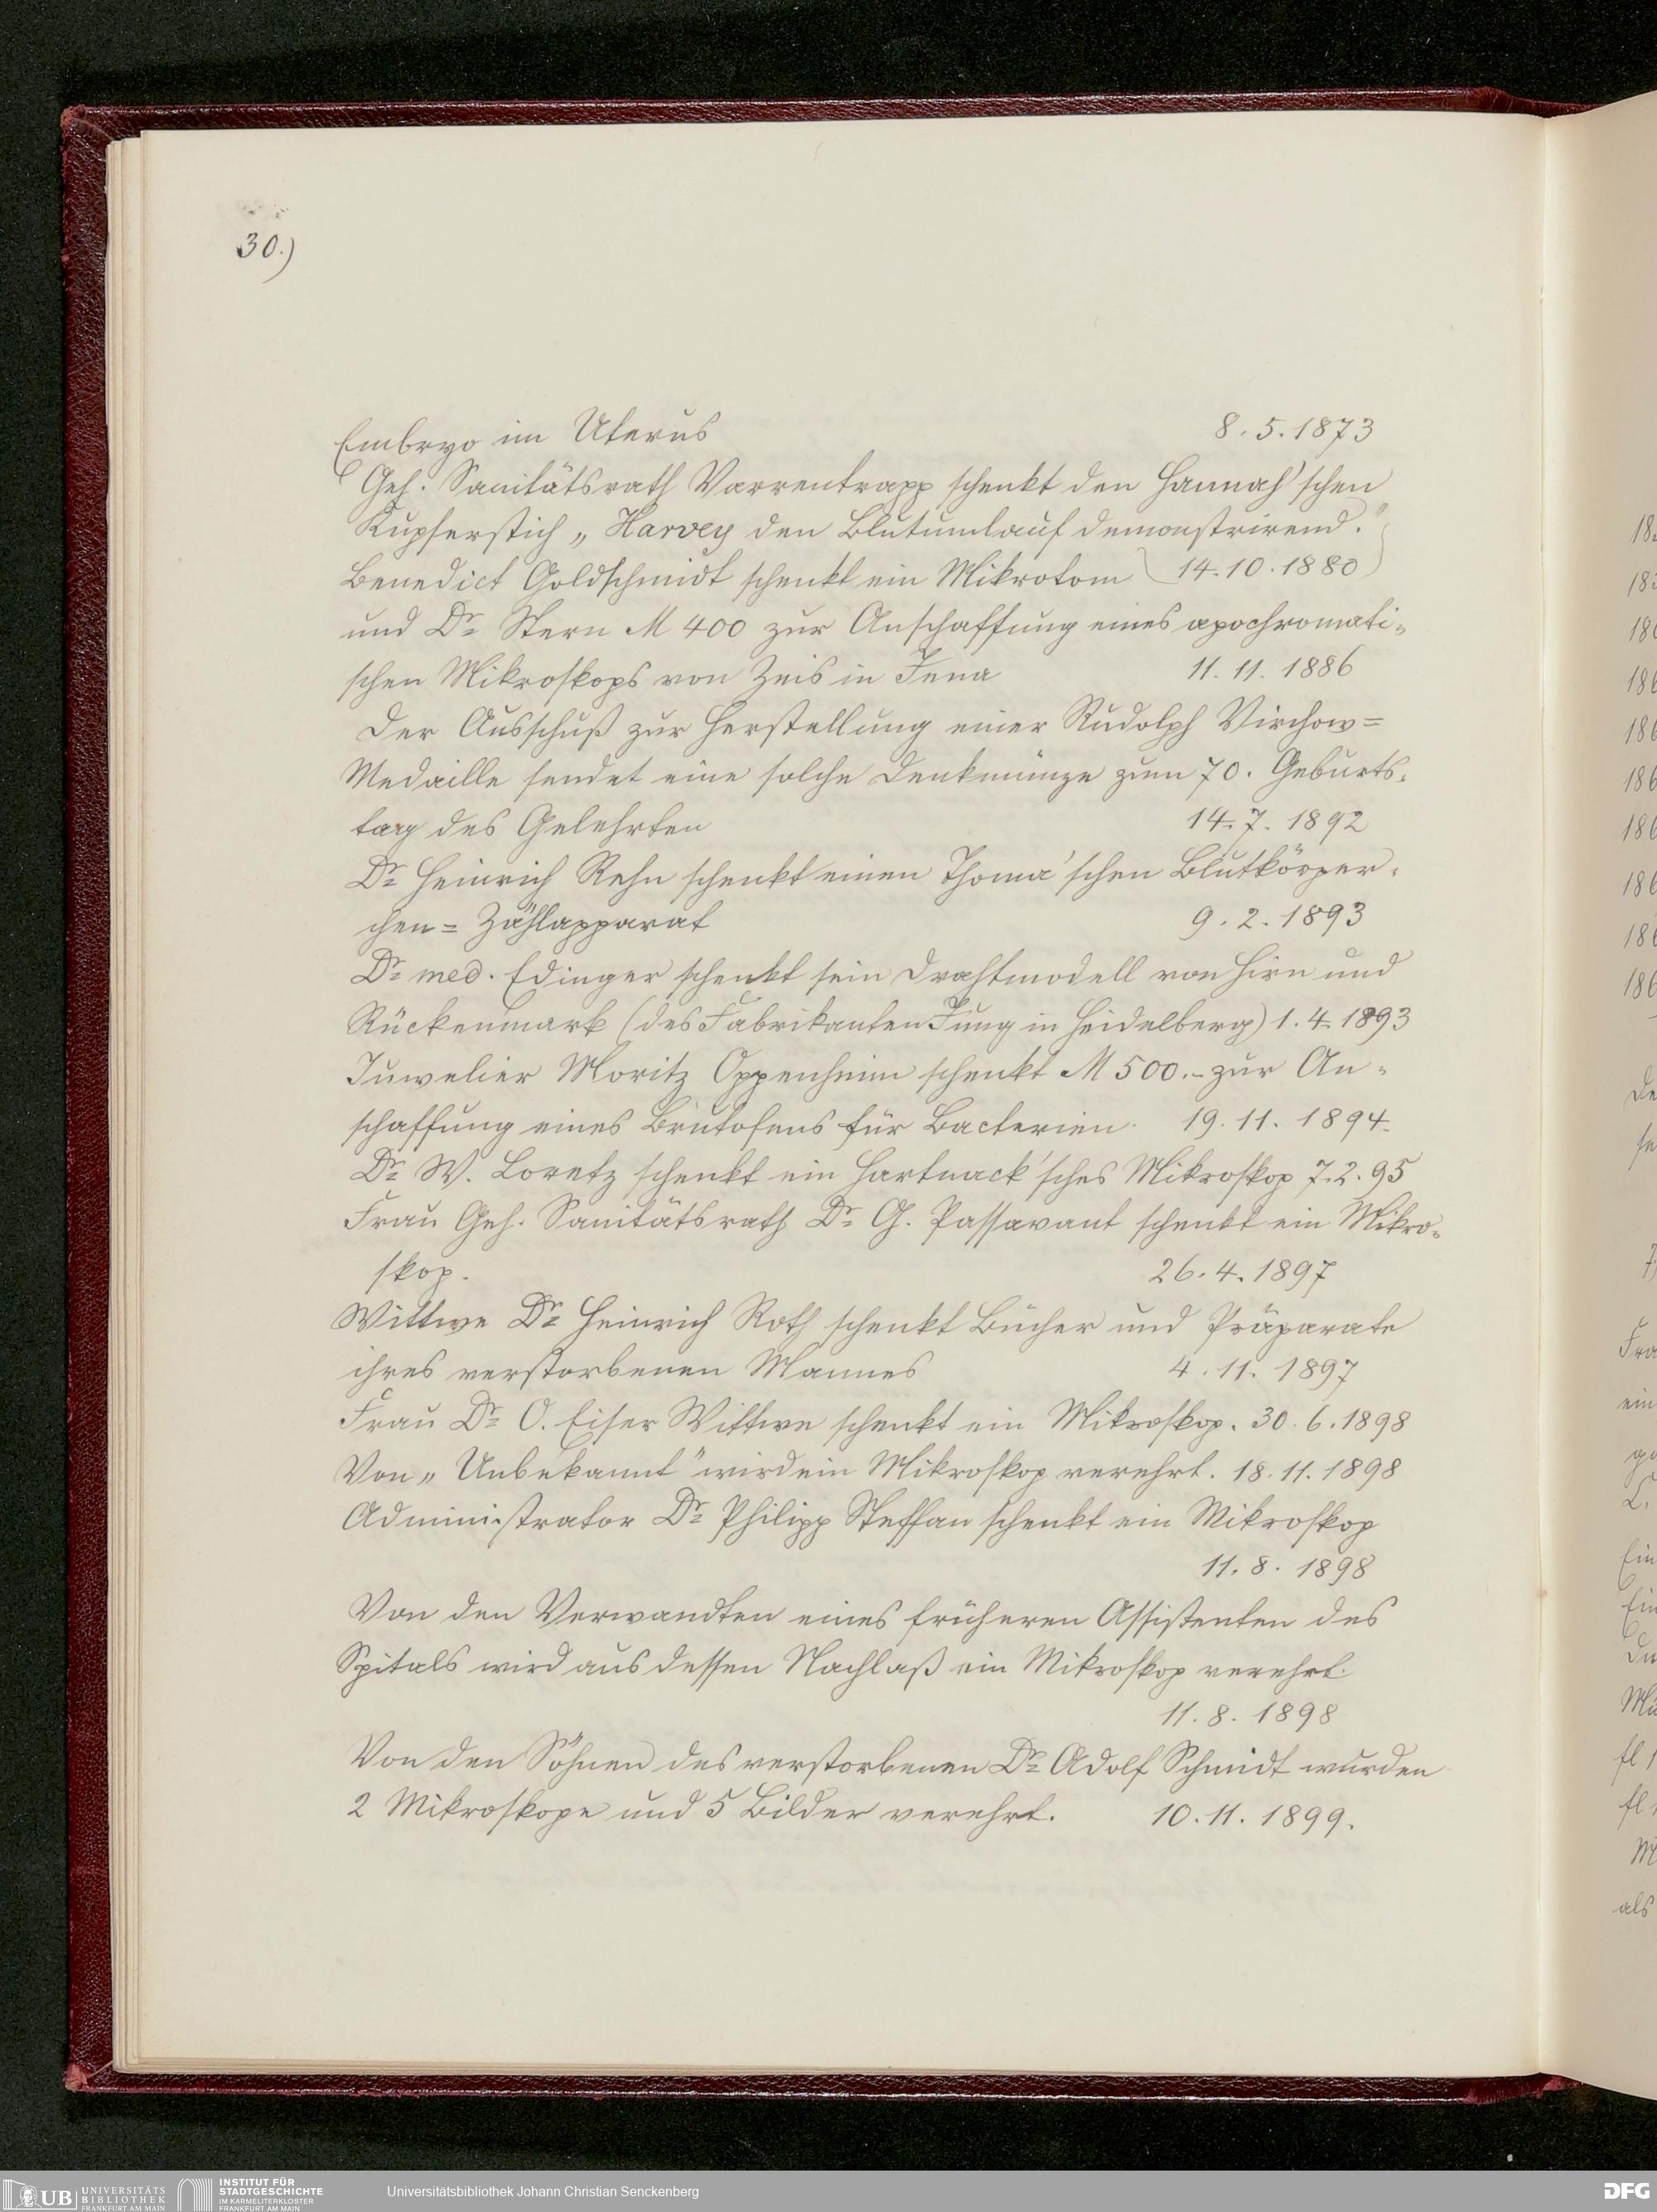 30.)
Embryo im Uterus 8. 5. 1873
Geh. Sanitätsrath Varrentrapp schenkt den Hannah'schen
Kupferstich „Harvey den Blutumlauf demonstrirend."
Benedict Goldschmidt schenkt ein Mikrotom 14. 10. 1880
und Dr Stern M 400 zur Anschaffung eines apochromati-
schen Mikroskops von Zeis in Jena 11. 11. 1886
Der Ausschuß zur Herstellung einer Rudolph Virchow=
Medaille sendet eine solche Denkmünze zum 70. Geburts-
tag des Gelehrten 14. 7. 1892
Dr Heinrich Rehn schenkt einen Thoma'schen Blutkörper-
chen=Zählapparat 9. 2. 1893
Dr med. Edinger schenkt sein Drahtmodell von Hirn und
Rückenmark (des Fabrikanten Jung in Heidelberg) 1. 4. 1893
Juwelier Moritz Oppenheim schenkt M 500.- zur An-
schaffung eines Brütofens für Bacterien. 19. 11. 1894.
Dr W. Loretz schenkt ein Hartnack'sches Mikroskop 7. 2. 95
Frau Geh. Sanitätsrath Dr G. Passavant schenkt ein Mikro-
skop. 26. 4. 1897
Wittwe Dr Heinrich Roth schenkt Bücher und Präparate
ihres verstorbenen Mannes 4. 11. 1897
Frau Dr O. Eiser Wittwe schenkt ein Mikroskop. 30. 6. 1898
Von „Unbekannt" wird ein Mikroskop verehrt. 18. 11. 1898
Administrator Dr Philipp Steffan schenkt ein Mikroskop
11. 8. 1898
Von den Verwandten eines früheren Assistenten des
Spitals wird aus dessen Nachlaß ein Mikroskop verehrt.
11. 8. 1898
Von den Söhnen des verstorbenen Dr Adolf Schmidt wurden
2 Mikroskope und 5 Bilder verehrt. 10. 11. 1899.
UB UNIVERSITÄTS BIBLIOTHEK FRANKFURT AM MAIN
INSTITUT FÜR STADTGESCHICHTE IM KARMELITERKLOSTER FRANKFURT AM MAIN
Universitätsbibliothek Johann Christian Senckenberg
DFG